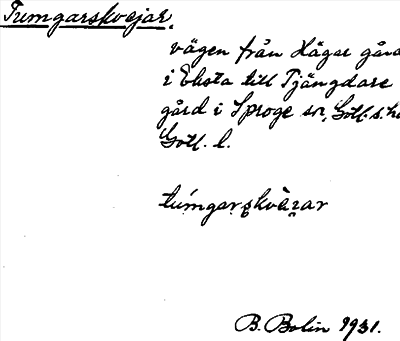 Tumgarskvejar.
vägen från Hägar gård
i Eksta till Tjängdare
gård i Sproge sn, Gotl. s. hd
Gotl. l.
tumgarskvèrar
B. Bolin 1931.